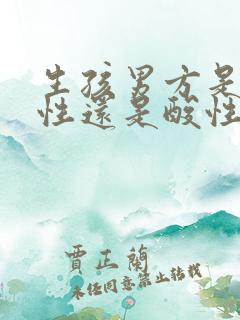 生孩男方是
性還是酸性
賈正蘭
未经同意禁止转载